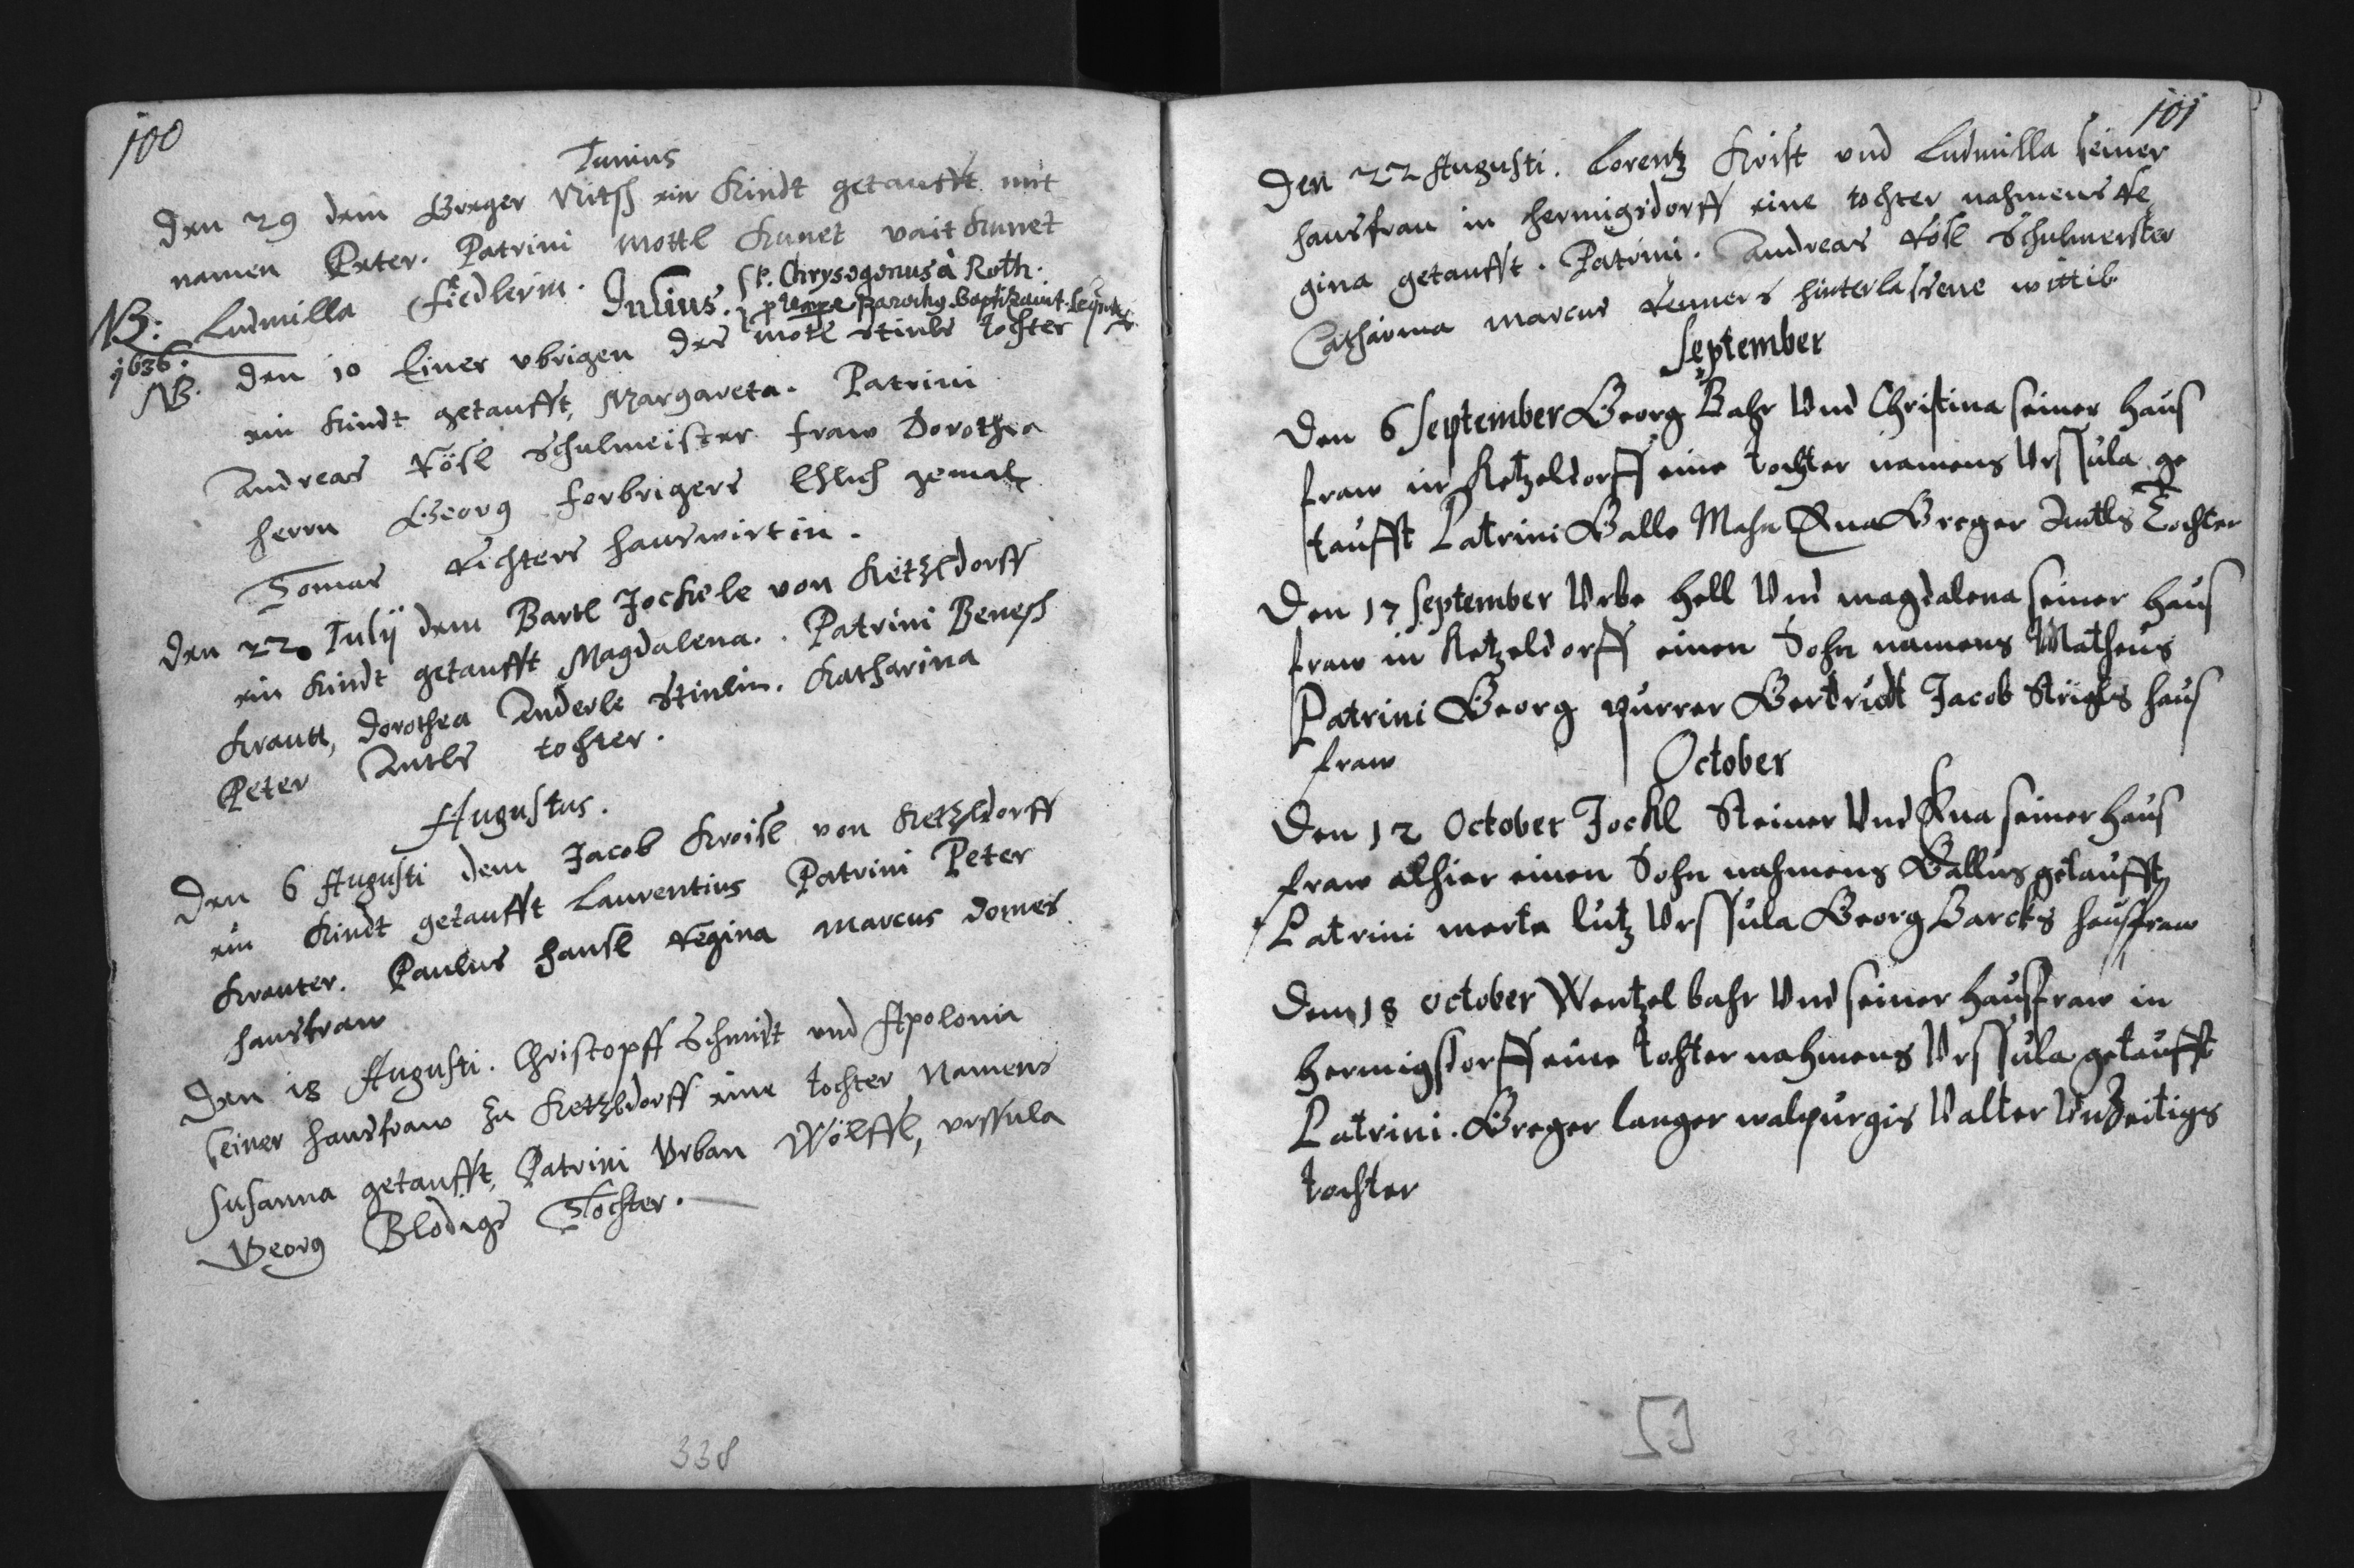 100
Junius
Den 29 dem Greger Nitsch ein Kindt getaufft mit
namen Peter. Patrini Mottl Kunet vait Kunet
Ludmilla Fiedlerin.
NB:
1636:
Julius.
P. Chrysogonus à Roth.
NB. Den 10 Einer ubrigen des Motl Stinls tochter
ein Kindt getaufft, Margareta. Patrini
Andreas Rösl Schulmeister fraw Dorothea
Herrn Georg forbrigers Ehlich gemal
Tomas Richters hauswirtin.
Den 22 Julÿ dem Bartl Jockele von Ketzldorff
ein Kindt getaufft Magdalena. Patrini Benesch
Krautt, Dorothea Anderle Stinlin. Katharina
Peter Antls tochter.
Augustus.
Den 6 Augusti dem Jacob Kroisl von Ketzldorff
ein Kindt getaufft Laurentius Patrini Peter
Krauter. Paulus Hansl Regina Marcus Domes
hausfraw
Den 18 Augusti. Christopff Schmidt und Apolonia
seiner hausfraw zu Ketzldorff eine tochter Namens
Susanna getaufft, Patrini Urban Wölffl, Urssula
Georg Blodigs Tochter.
338
101
Den 22 Augusti. Lorentz Krist und Ludmilla seiner
hausfrau in Hermigsdorff eine tochter nahmens Re
gina getaufft. Patrini. Andreas Rösl Schulmeister
Catharina Marcus Renners hinterlassene wittib
September
Den 6 September Georg Bahr Und Christina seiner Haus
fraw in Ketzeldorff eine Tochter namens Urssula ge
taufft Patrini Galle Mahn Ana Greger Antls Tochter
Den 17 September Urbe Hell Und Magdalena seiner Haus
fraw in Ketzeldorff einen Sohn namens Matheus
Patrini Georg purrer Gertrudt Jacob haus
fraw
October
Den 12 October Jockl Steiner Und Ana seiner Haus
fraw alhier einen Sohn nahmens Gallus getaufft
Patrini merta lutz Urssula Georg Barcks hausfraw
Den 18 October Wentzel bahr Und seiner Hausfraw in
Hermigsdorff eine tochter nahmens Urssula getaufft
Patrini. Greger langer walpurgis Valter Unzeitigs
tochter